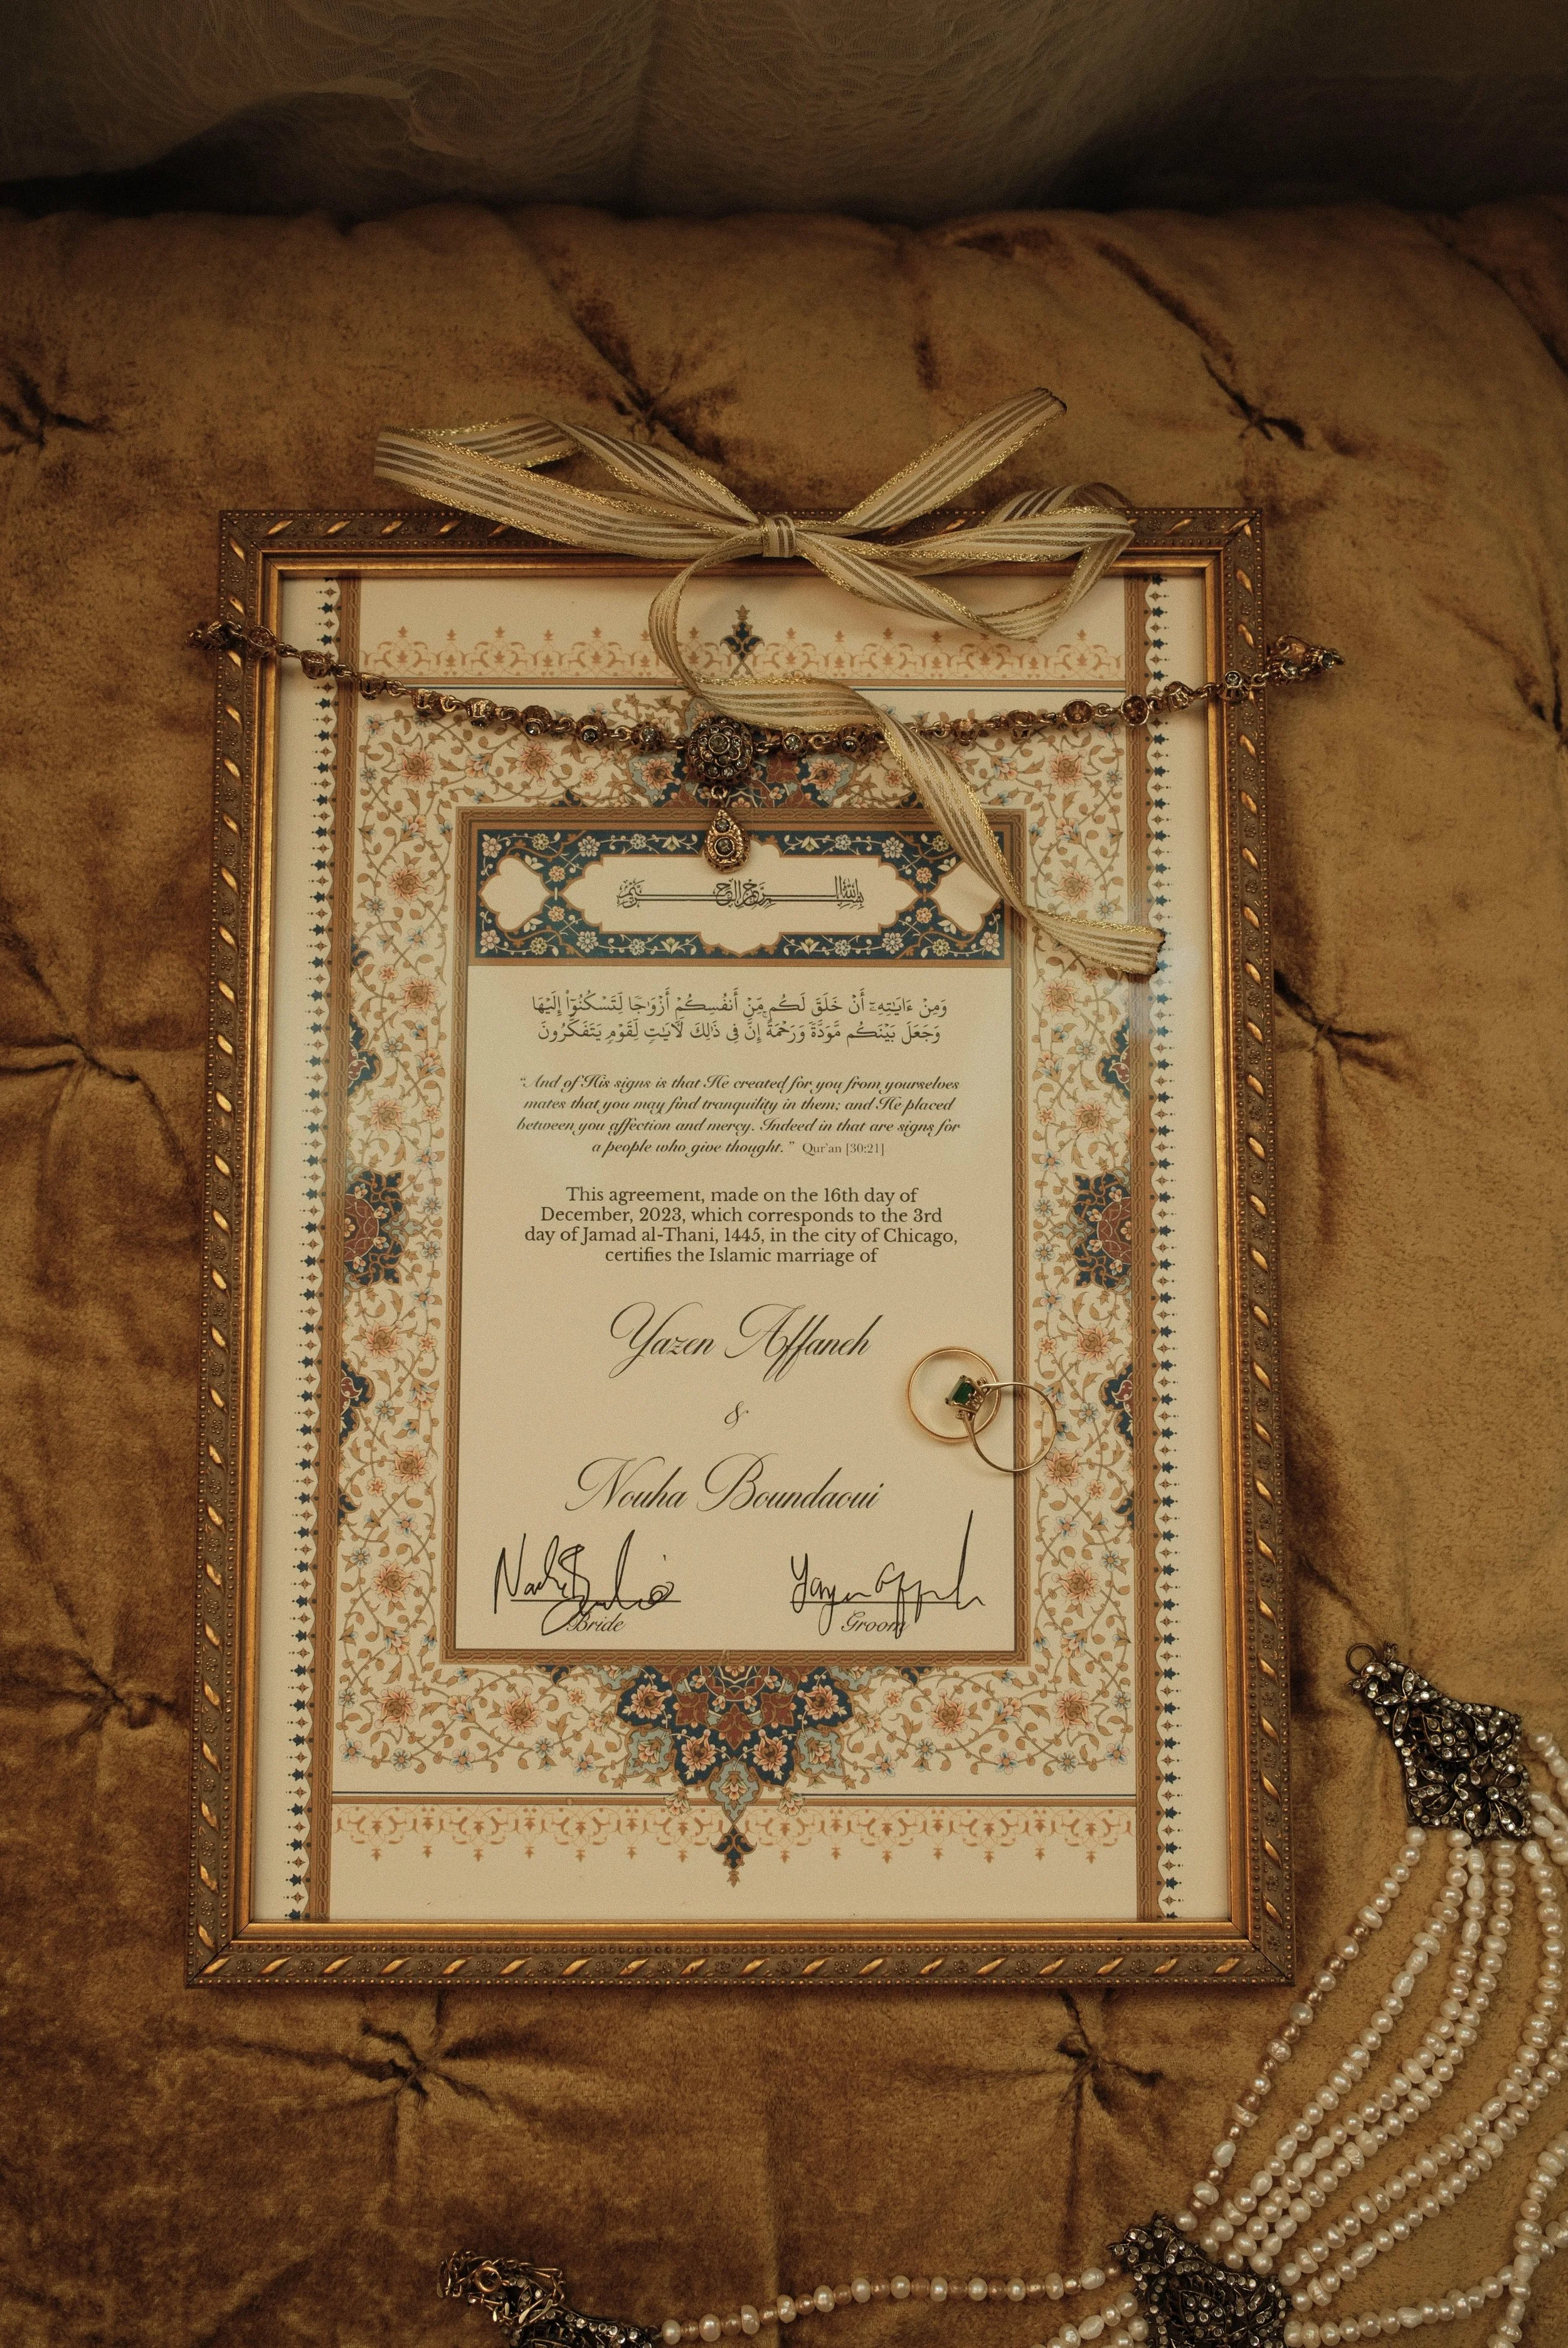 بسم الله الرحمن الرحيم
وَمِنْ ءَايَـٰتِهِۦٓ أَنْ خَلَقَ لَكُم مِّنْ أَنفُسِكُمْ أَزْوَٰجًا لِّتَسْكُنُوٓا۟ إِلَيْهَا
وَجَعَلَ بَيْنَكُم مَّوَدَّةً وَرَحْمَةً ۚ إِنَّ فِى ذَٰلِكَ لَـَٔايَـٰتٍ لِّقَوْمٍ يَتَفَكَّرُونَ
"And of His signs is that He created for you from yourselves
mates that you may find tranquility in them; and He placed
between you affection and mercy. Indeed in that are signs for
a people who give thought." Qur'an [30:21]
This agreement, made on the 16th day of
December, 2023, which corresponds to the 3rd
day of Jamad al-Thani, 1445, in the city of Chicago,
certifies the Islamic marriage of
Yazen Affaneh
&
Nouha Boundaoui
Bride
Groom